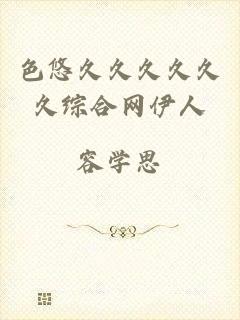 色悠久久久久久
久综合网伊人
容学思